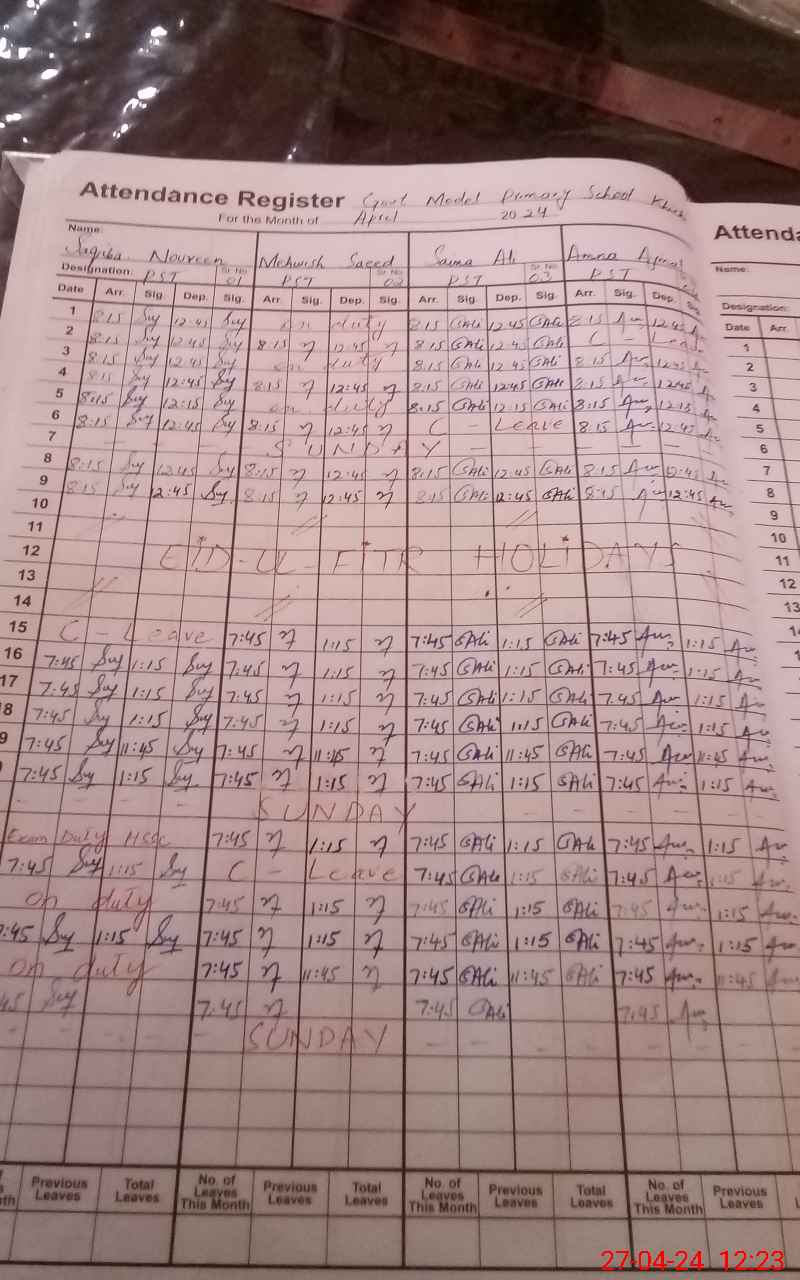 Attendance Register Govt Model Primary School
For the Month of April 2024
Attenda
Name:
Saqiba Noureen Mehwish Saeed Saima Ali Amna
Name:
Designation: PST Sr No 01 PST Sr No 02 PST Sr No 03 PST
Designation:
Date Arr. Sig. Dep. Sig. Arr. Sig. Dep. Sig. Arr. Sig. Dep. Sig. Arr. Sig. Dep. Sig.
Date Arr.
1 8:15 Suy 12:45 Suy on duty 8:15 GAli 12:45 GAli 8:15 Am 12:45
2 8:15 Suy 12:45 Suy 8:15 12:45 8:15 GAli 12:45 GAli C -
3 8:15 Suy 12:45 Suy on duty 8:15 GAli 12:45 GAli 8:15 Am 12:45
4 8:15 Suy 12:45 Suy 8:15 12:45 8:15 GAli 12:45 GAli 8:15 Am 12:45
5 8:15 Suy 12:15 Suy on duty 8:15 GAli 12:15 GAli 8:15 Am 12:15
6 8:15 Suy 12:45 Suy 8:15 12:45 C - Leave 8:15 Am 12:45
7 SUNDAY
8 8:15 Suy 12:45 Suy 8:15 12:45 8:15 GAli 12:45 GAli 8:15 Am 12:45
9 8:15 Suy 12:45 Suy 8:15 12:45 8:15 GAli 12:45 GAli 8:15 Am 12:45
10
11
12 EID-UL-FITR HOLIDAYS
13
14
15 C - Leave 7:45 1:15 7:45 GAli 1:15 GAli 7:45 Am 1:15 Am
16 7:45 Suy 1:15 Suy 7:45 1:15 7:45 GAli 1:15 GAli 7:45 Am 1:15 Am
17 7:45 Suy 1:15 Suy 7:45 1:15 7:45 GAli 1:15 GAli 7:45 Am 1:15 Am
8 7:45 Suy 1:15 Suy 7:45 1:15 7:45 GAli 1:15 GAli 7:45 Am 1:15 Am
9 7:45 Suy 11:45 Suy 7:45 11:45 7:45 GAli 11:45 GAli 7:45 Am 11:45 Am
7:45 Suy 1:15 Suy 7:45 1:15 7:45 GAli 1:15 GAli 7:45 Am 1:15 Am
SUNDAY
Exam Duty HSSC 7:45 1:15 7:45 GAli 1:15 GAli 7:45 Am 1:15 Am
7:45 Suy 1:15 Suy C - Leave 7:45 GAli 1:15 GAli 7:45 Am 1:15 Am
on duty 7:45 1:15 7:45 GAli 1:15 GAli 7:45 Am 1:15 Am
7:45 Suy 1:15 Suy 7:45 1:15 7:45 GAli 1:15 GAli 7:45 Am 1:15 Am
on duty 7:45 11:45 7:45 GAli 11:45 GAli 7:45 Am 11:45 Am
45 Suy 7:45 7:45 GAli 7:45 Am
SUNDAY
Previous Leaves Total Leaves No. of Leaves This Month Previous Leaves Total Leaves No. of Leaves This Month Previous Leaves Total Leaves No. of Leaves This Month Previous Leaves
1
2
3
4
5
6
7
8
9
10
11
12
13
27-04-24 12:23